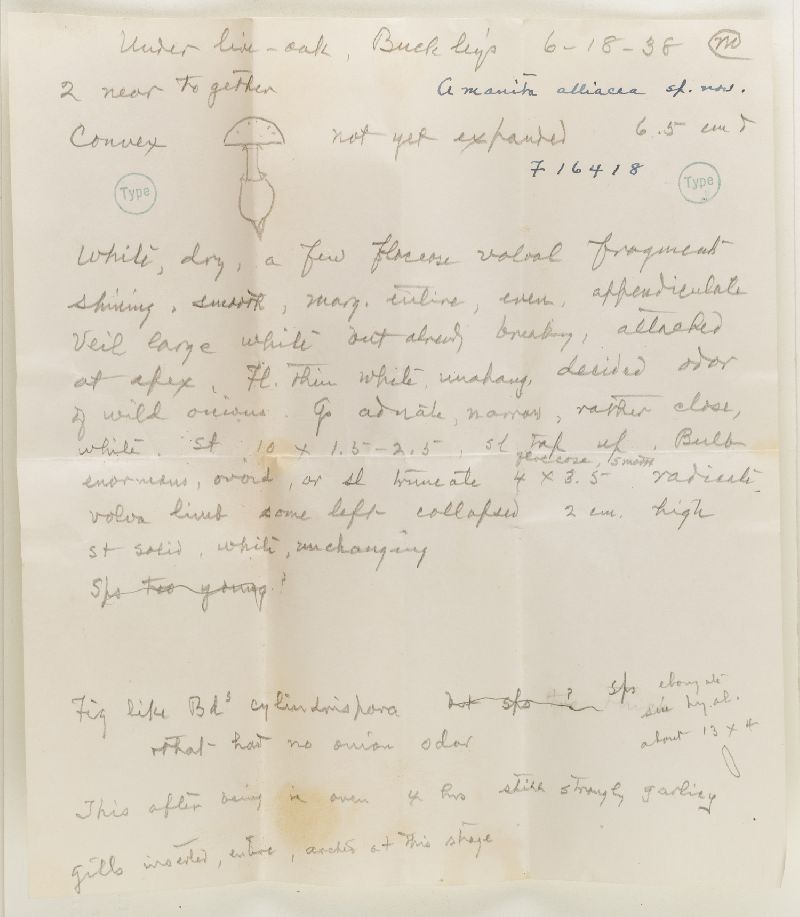 Under live-oak, Buckleys 6-18-38 no
2 near together Amanita alliacea sp. nov.
Convex not yet expanded 6.5 cm
F 16418
Type Type
White, dry, a few floccose volval fragment
shining, smooth, marg. entire, even, appendiculate
Veil large white but already breaking, attached
at apex, Fl. thin white, unchang. decided odor
of wild onions. G. adnate, narrow, rather close,
white. St 10 x 1.5-2.5, sl tap up. Bulb
floccose, smooth
enormous, ovoid, or sl truncate 4 x 3.5 radicate
volva limb some left collapsed 2 cm. high
st solid, white, unchanging
Sps too young?
Fig like Bd's cylindrispora but sps ? sps elongate
sm hy. al.
about 13 x 4
that had no onion odor
This after being in oven 4 hrs still strongly garlicy
gills inserted, entire, arched at this stage